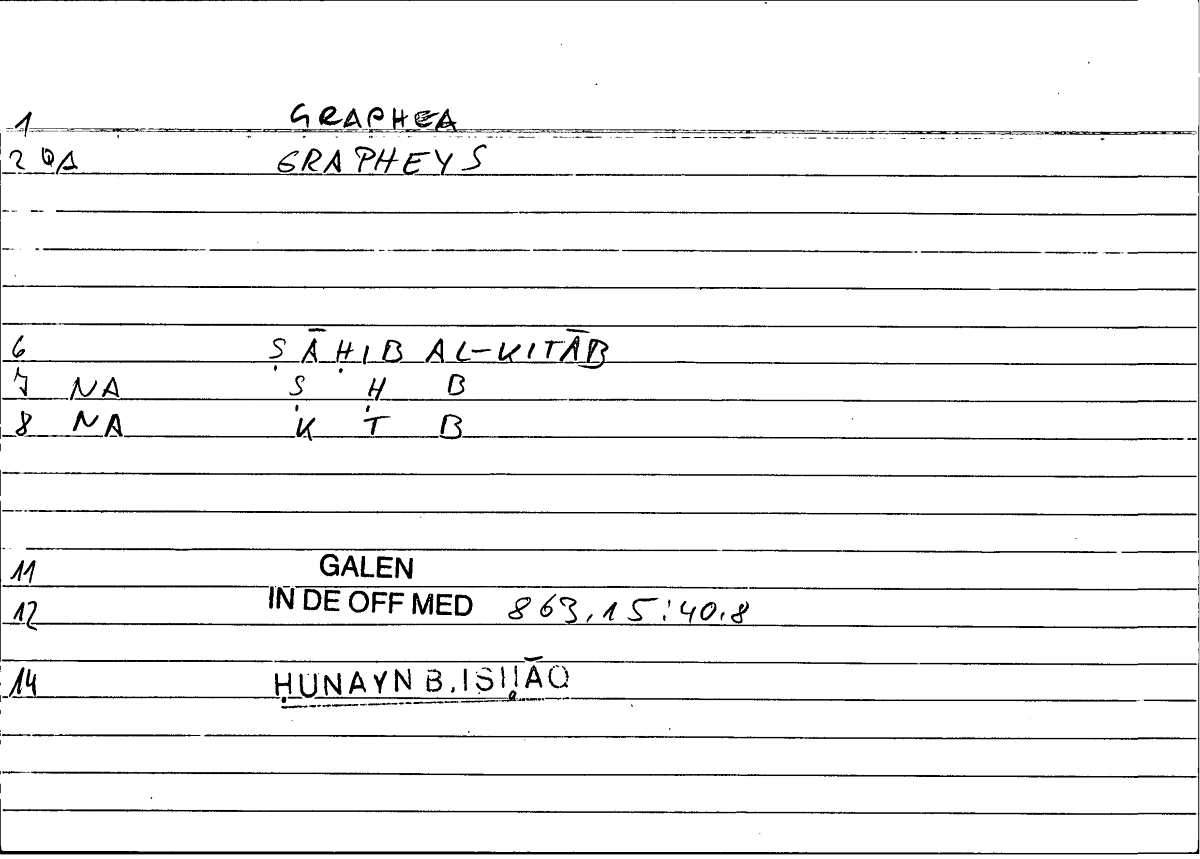 1 GRAPHEA
2 QA GRAPHEYS
6 ṢĀḤIB AL-KITĀB
7 NA Ṣ Ḥ B
8 NA K T B
11 GALEN
12 IN DE OFF MED 863,15:40,8
14 ḤUNAYN B. ISḤĀQ